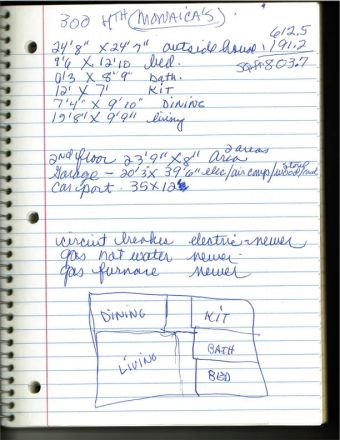 302 4TH (MONAICA'S)
612.5
24'8" X 24'7" outside house 191.2
9'6 X 12'10 bed. SQ.Ft 803.7
6'3 X 8'9" bath.
12' X 7' KIT
7'4" X 9'10" DINING
19'8" X 9'9" living
2 areas
2nd floor 23'9" X 8" Area
Garage - 20'3 X 39'6" elec/air comp/wood
Stove
Carport. 35 X 12
circuit breaker electric - newer
gas hot water newer -
gas furnace newer
DINING KIT
LIVING BATH
BED